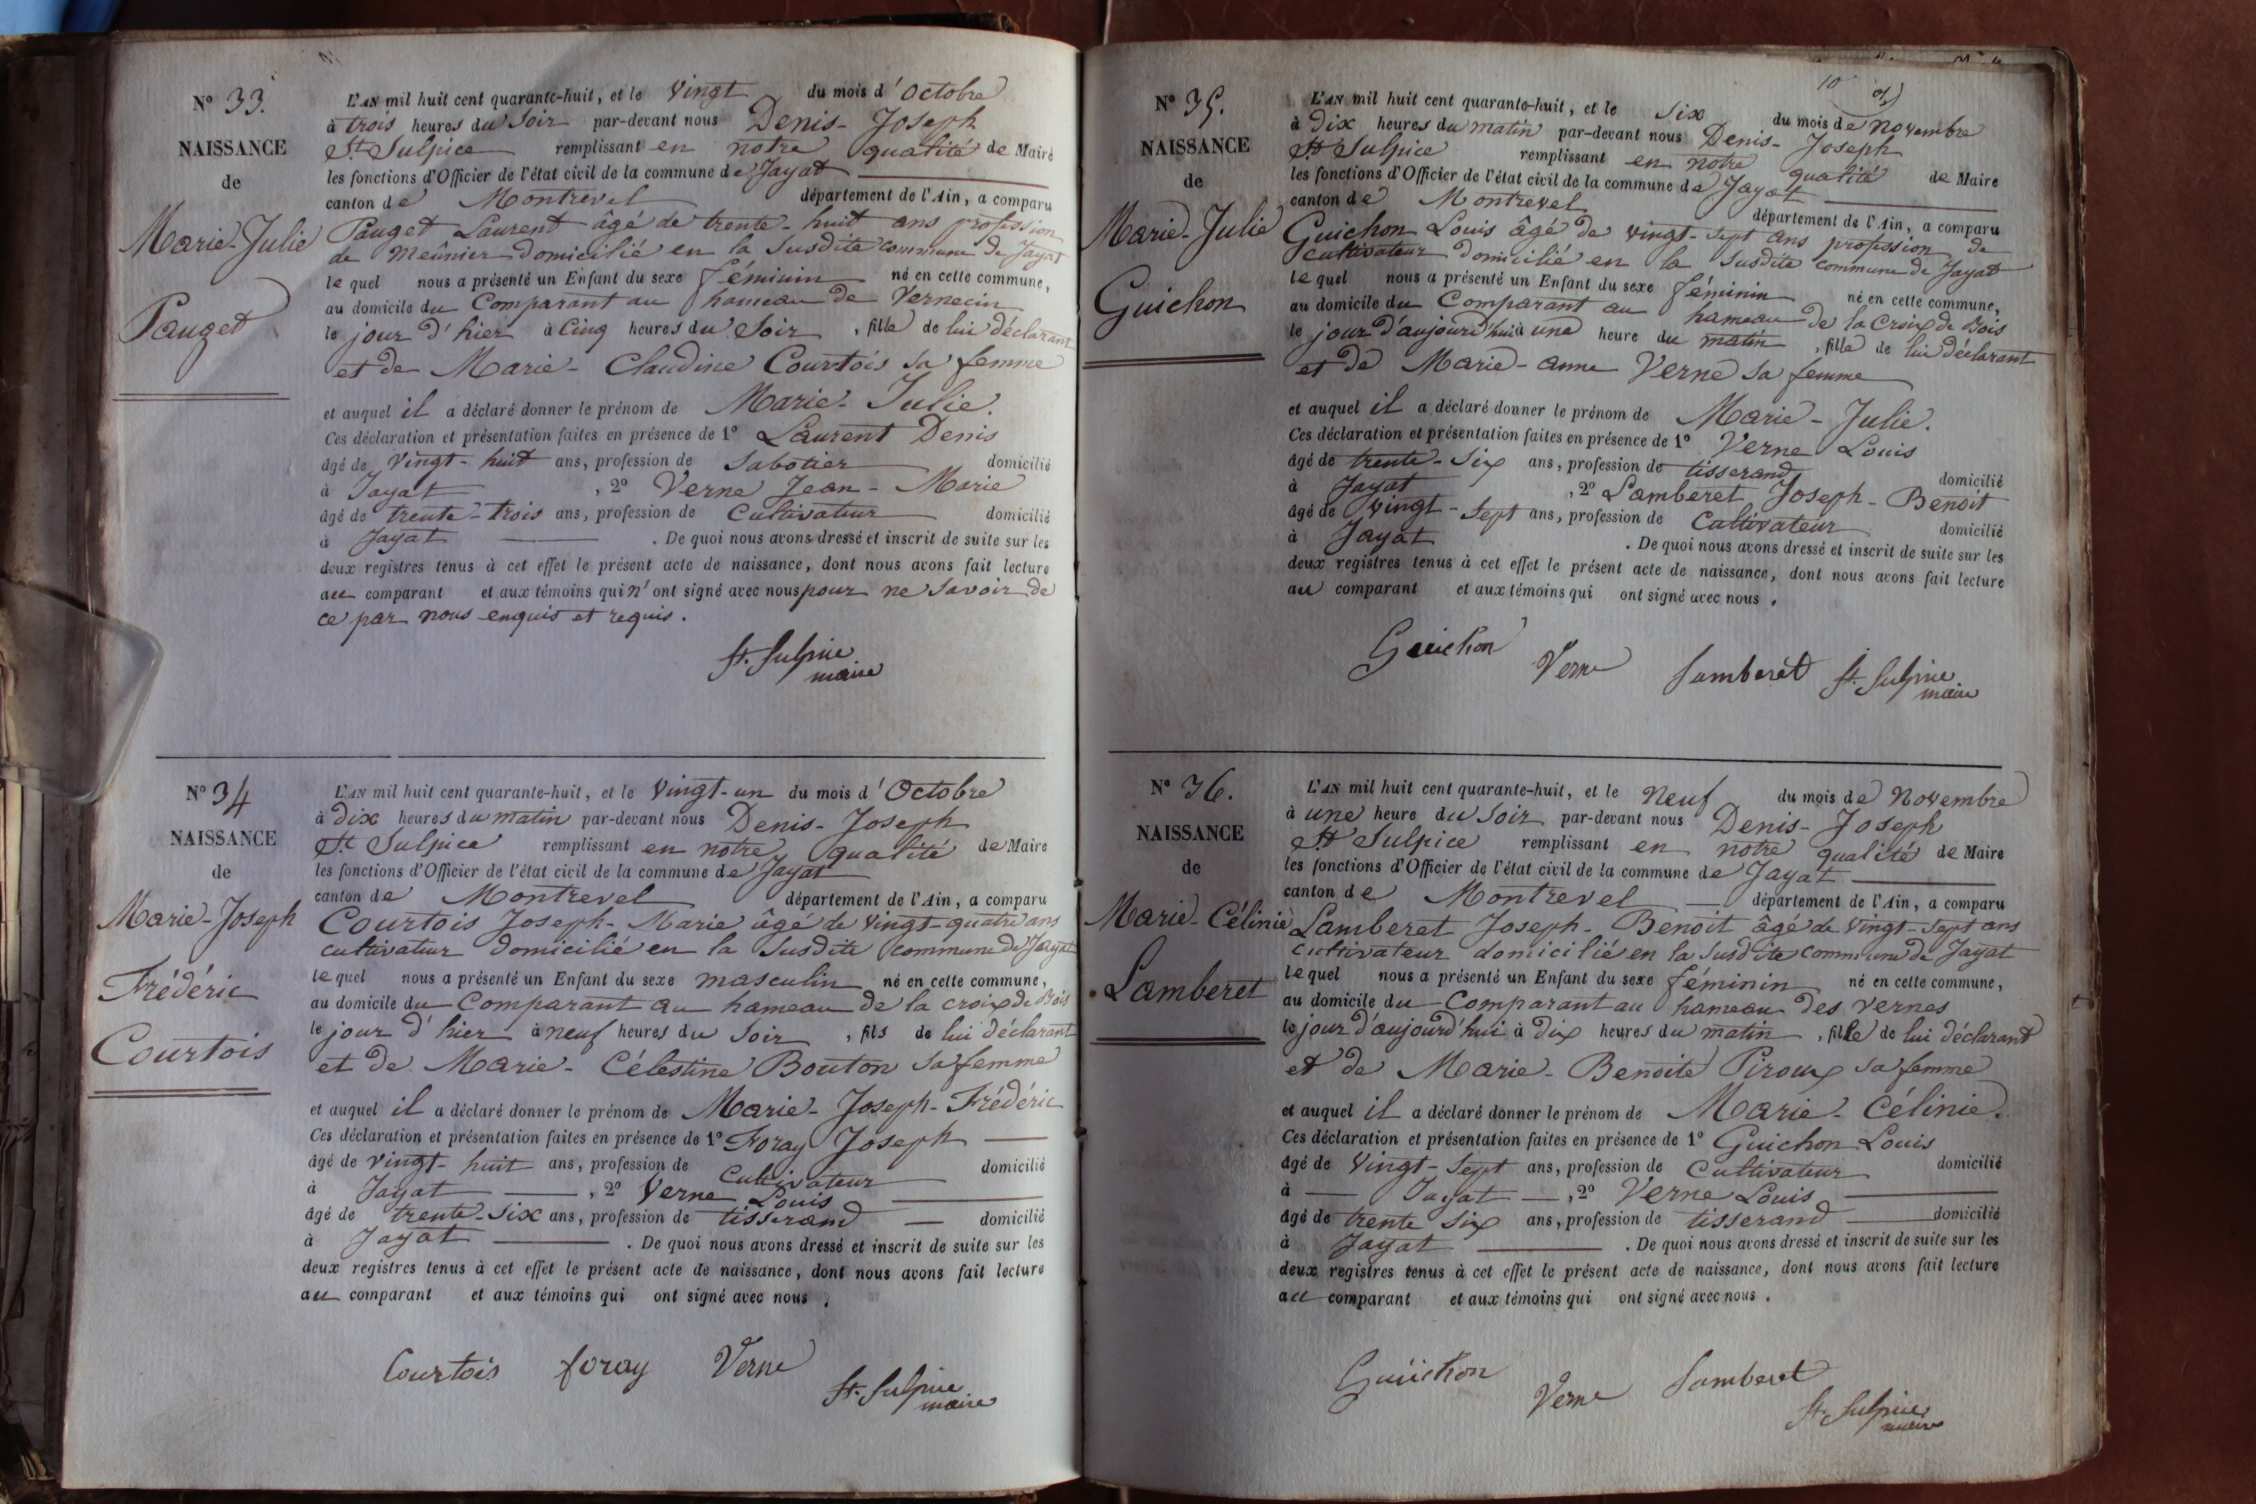 N° 33.
NAISSANCE
de
Marie-Julie
Pauget
L'AN mil huit cent quarante-huit, et le Vingt du mois d'Octobre
à trois heures du Soir par-devant nous Denis-Joseph
St Sulpice remplissant en notre qualité de Maire
les fonctions d'Officier de l'état civil de la commune de Jayat
canton de Montrevel département de l'Ain, a comparu
Pauget Laurent âgé de trente-huit ans profession
de Meûnier domicilié en la susdite commune de Jayat
lequel nous a présenté un Enfant du sexe féminin né en cette commune,
au domicile du Comparant au hameau de Vernecin
le jour d'hier à Cinq heures du Soir, fille de lui déclarant
et de Marie-Claudine Courtois sa femme
et auquel il a déclaré donner le prénom de Marie-Julie.
Ces déclaration et présentation faites en présence de 1° Laurent Denis
âgé de Vingt-huit ans, profession de Sabotier domicilié
à Jayat, 2° Verne Jean-Marie
âgé de trente-trois ans, profession de Cultivateur domicilié
à Jayat. De quoi nous avons dressé et inscrit de suite sur les
deux registres tenus à cet effet le présent acte de naissance, dont nous avons fait lecture
au comparant et aux témoins qui n'ont signé avec nous pour ne Savoir de
ce par nous enquis et requis.
St. Sulpice
maire
N° 34
NAISSANCE
de
Marie-Joseph
Frédéric
Courtois
L'AN mil huit cent quarante-huit, et le Vingt-un du mois d'Octobre
à dix heures du matin par-devant nous Denis-Joseph
St Sulpice remplissant en notre qualité de Maire
les fonctions d'Officier de l'état civil de la commune de Jayat
canton de Montrevel département de l'Ain, a comparu
Courtois Joseph-Marie âgé de Vingt-quatre ans
cultivateur domicilié en la Susdite commune de Jayat
lequel nous a présenté un Enfant du sexe masculin né en cette commune,
au domicile du Comparant au hameau de la croix de Bois
le jour d'hier à neuf heures du Soir, fils de lui déclarant
et de Marie-Célestine Bouton sa femme
et auquel il a déclaré donner le prénom de Marie-Joseph-Frédéric
Ces déclaration et présentation faites en présence de 1° Foray Joseph
âgé de vingt-huit ans, profession de Cultivateur domicilié
à Jayat, 2° Verne Louis
âgé de trente-six ans, profession de tisserand domicilié
à Jayat. De quoi nous avons dressé et inscrit de suite sur les
deux registres tenus à cet effet le présent acte de naissance, dont nous avons fait lecture
au comparant et aux témoins qui ont signé avec nous.
Courtois foray Verne
St. Sulpice
maire
10
N° 35.
NAISSANCE
de
Marie-Julie
Guichon
L'AN mil huit cent quarante-huit, et le Six du mois de Novembre
à Dix heures du matin par-devant nous Denis-Joseph
St Sulpice remplissant en notre qualité de Maire
les fonctions d'Officier de l'état civil de la commune de Jayat
canton de Montrevel département de l'Ain, a comparu
Guichon Louis âgé de Vingt-Sept ans profession de
cultivateur domicilié en la susdite commune de Jayat
lequel nous a présenté un Enfant du sexe féminin né en cette commune,
au domicile du Comparant au hameau de la Croix de Bois
le jour d'aujourd'hui à une heure du matin, fille de lui déclarant
et de Marie-anne Verne sa femme
et auquel il a déclaré donner le prénom de Marie-Julie.
Ces déclaration et présentation faites en présence de 1° Verne Louis
âgé de trente-Six ans, profession de tisserand domicilié
à Jayat, 2° Lamberet Joseph-Benoit
âgé de vingt-Sept ans, profession de Cultivateur domicilié
à Jayat. De quoi nous avons dressé et inscrit de suite sur les
deux registres tenus à cet effet le présent acte de naissance, dont nous avons fait lecture
au comparant et aux témoins qui ont signé avec nous.
Guichon Verne Lamberet St. Sulpice
maire
N° 36.
NAISSANCE
de
Marie-Célinie
Lamberet
L'AN mil huit cent quarante-huit, et le Neuf du mois de Novembre
à une heure du Soir par-devant nous Denis-Joseph
St Sulpice remplissant en notre qualité de Maire
les fonctions d'Officier de l'état civil de la commune de Jayat
canton de Montrevel département de l'Ain, a comparu
Lamberet Joseph-Benoit âgé de Vingt-Sept ans
cultivateur domicilié en la susdite commune de Jayat
lequel nous a présenté un Enfant du sexe féminin né en cette commune,
au domicile du Comparant au hameau des vernes
le jour d'aujourd'hui à dix heures du matin, fille de lui déclarant
et de Marie-Benoite Piroux sa femme
et auquel il a déclaré donner le prénom de Marie-Célinie.
Ces déclaration et présentation faites en présence de 1° Guichon Louis
âgé de Vingt-Sept ans, profession de Cultivateur domicilié
à Jayat, 2° Verne Louis
âgé de trente Six ans, profession de tisserand domicilié
à Jayat. De quoi nous avons dressé et inscrit de suite sur les
deux registres tenus à cet effet le présent acte de naissance, dont nous avons fait lecture
au comparant et aux témoins qui ont signé avec nous.
Guichon Verne Lamberet
St. Sulpice
maire